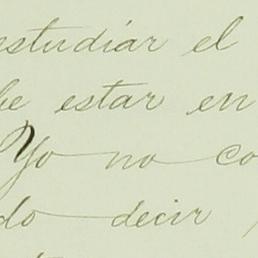 estudiar el
be estar en
Yo no co
do decir,